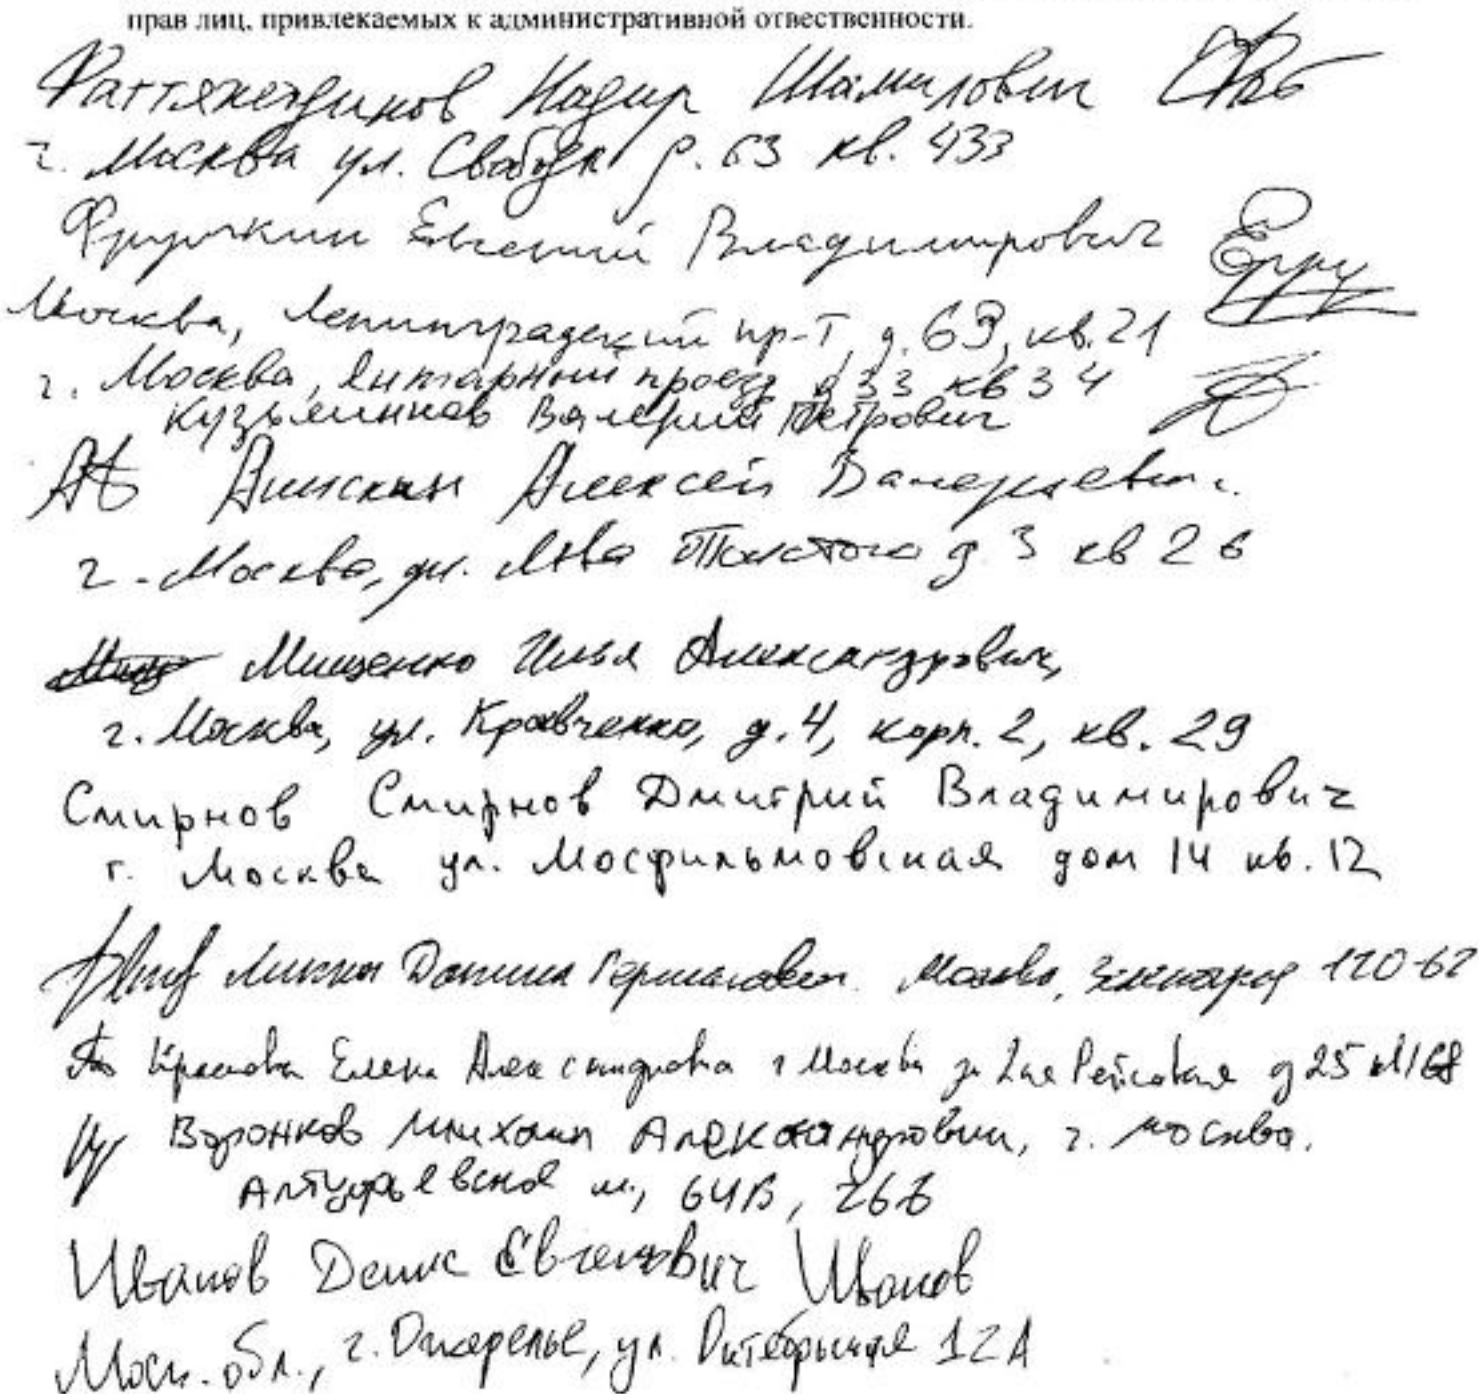 прав лиц, привлекаемых к административной отвественности.
Надир Шамилович
г. Москва ул. Свободы д. 63 кв. 433
Фрумкин Евгений Владимирович
Москва, Ленинградский пр-т, д. 63, кв. 21
г. Москва, Янтарный проезд д 33 кв 34
Валерий Петрович
Алексей Валерьевич
г. Москва, ул. Льва Толстого д. 3 кв 26
Мищенко Илья Александрович,
г. Москва, ул. Кравченко, д. 4, корп. 2, кв. 29
Смирнов Смирнов Дмитрий Владимирович
г. Москва ул. Мосфильмовская дом 14 кв. 12
Германович. Москва, Зеленоград
Елена Александровна г Москва 2ая Рейсовая д 25
Воронков Михаил Александрович, г. Москва.
Алтуфьевское ш., 64В,
Иванов Денис Евгеньевич Иванов
Моск. обл., г. Ожерелье, ул. Октябрьская 12А